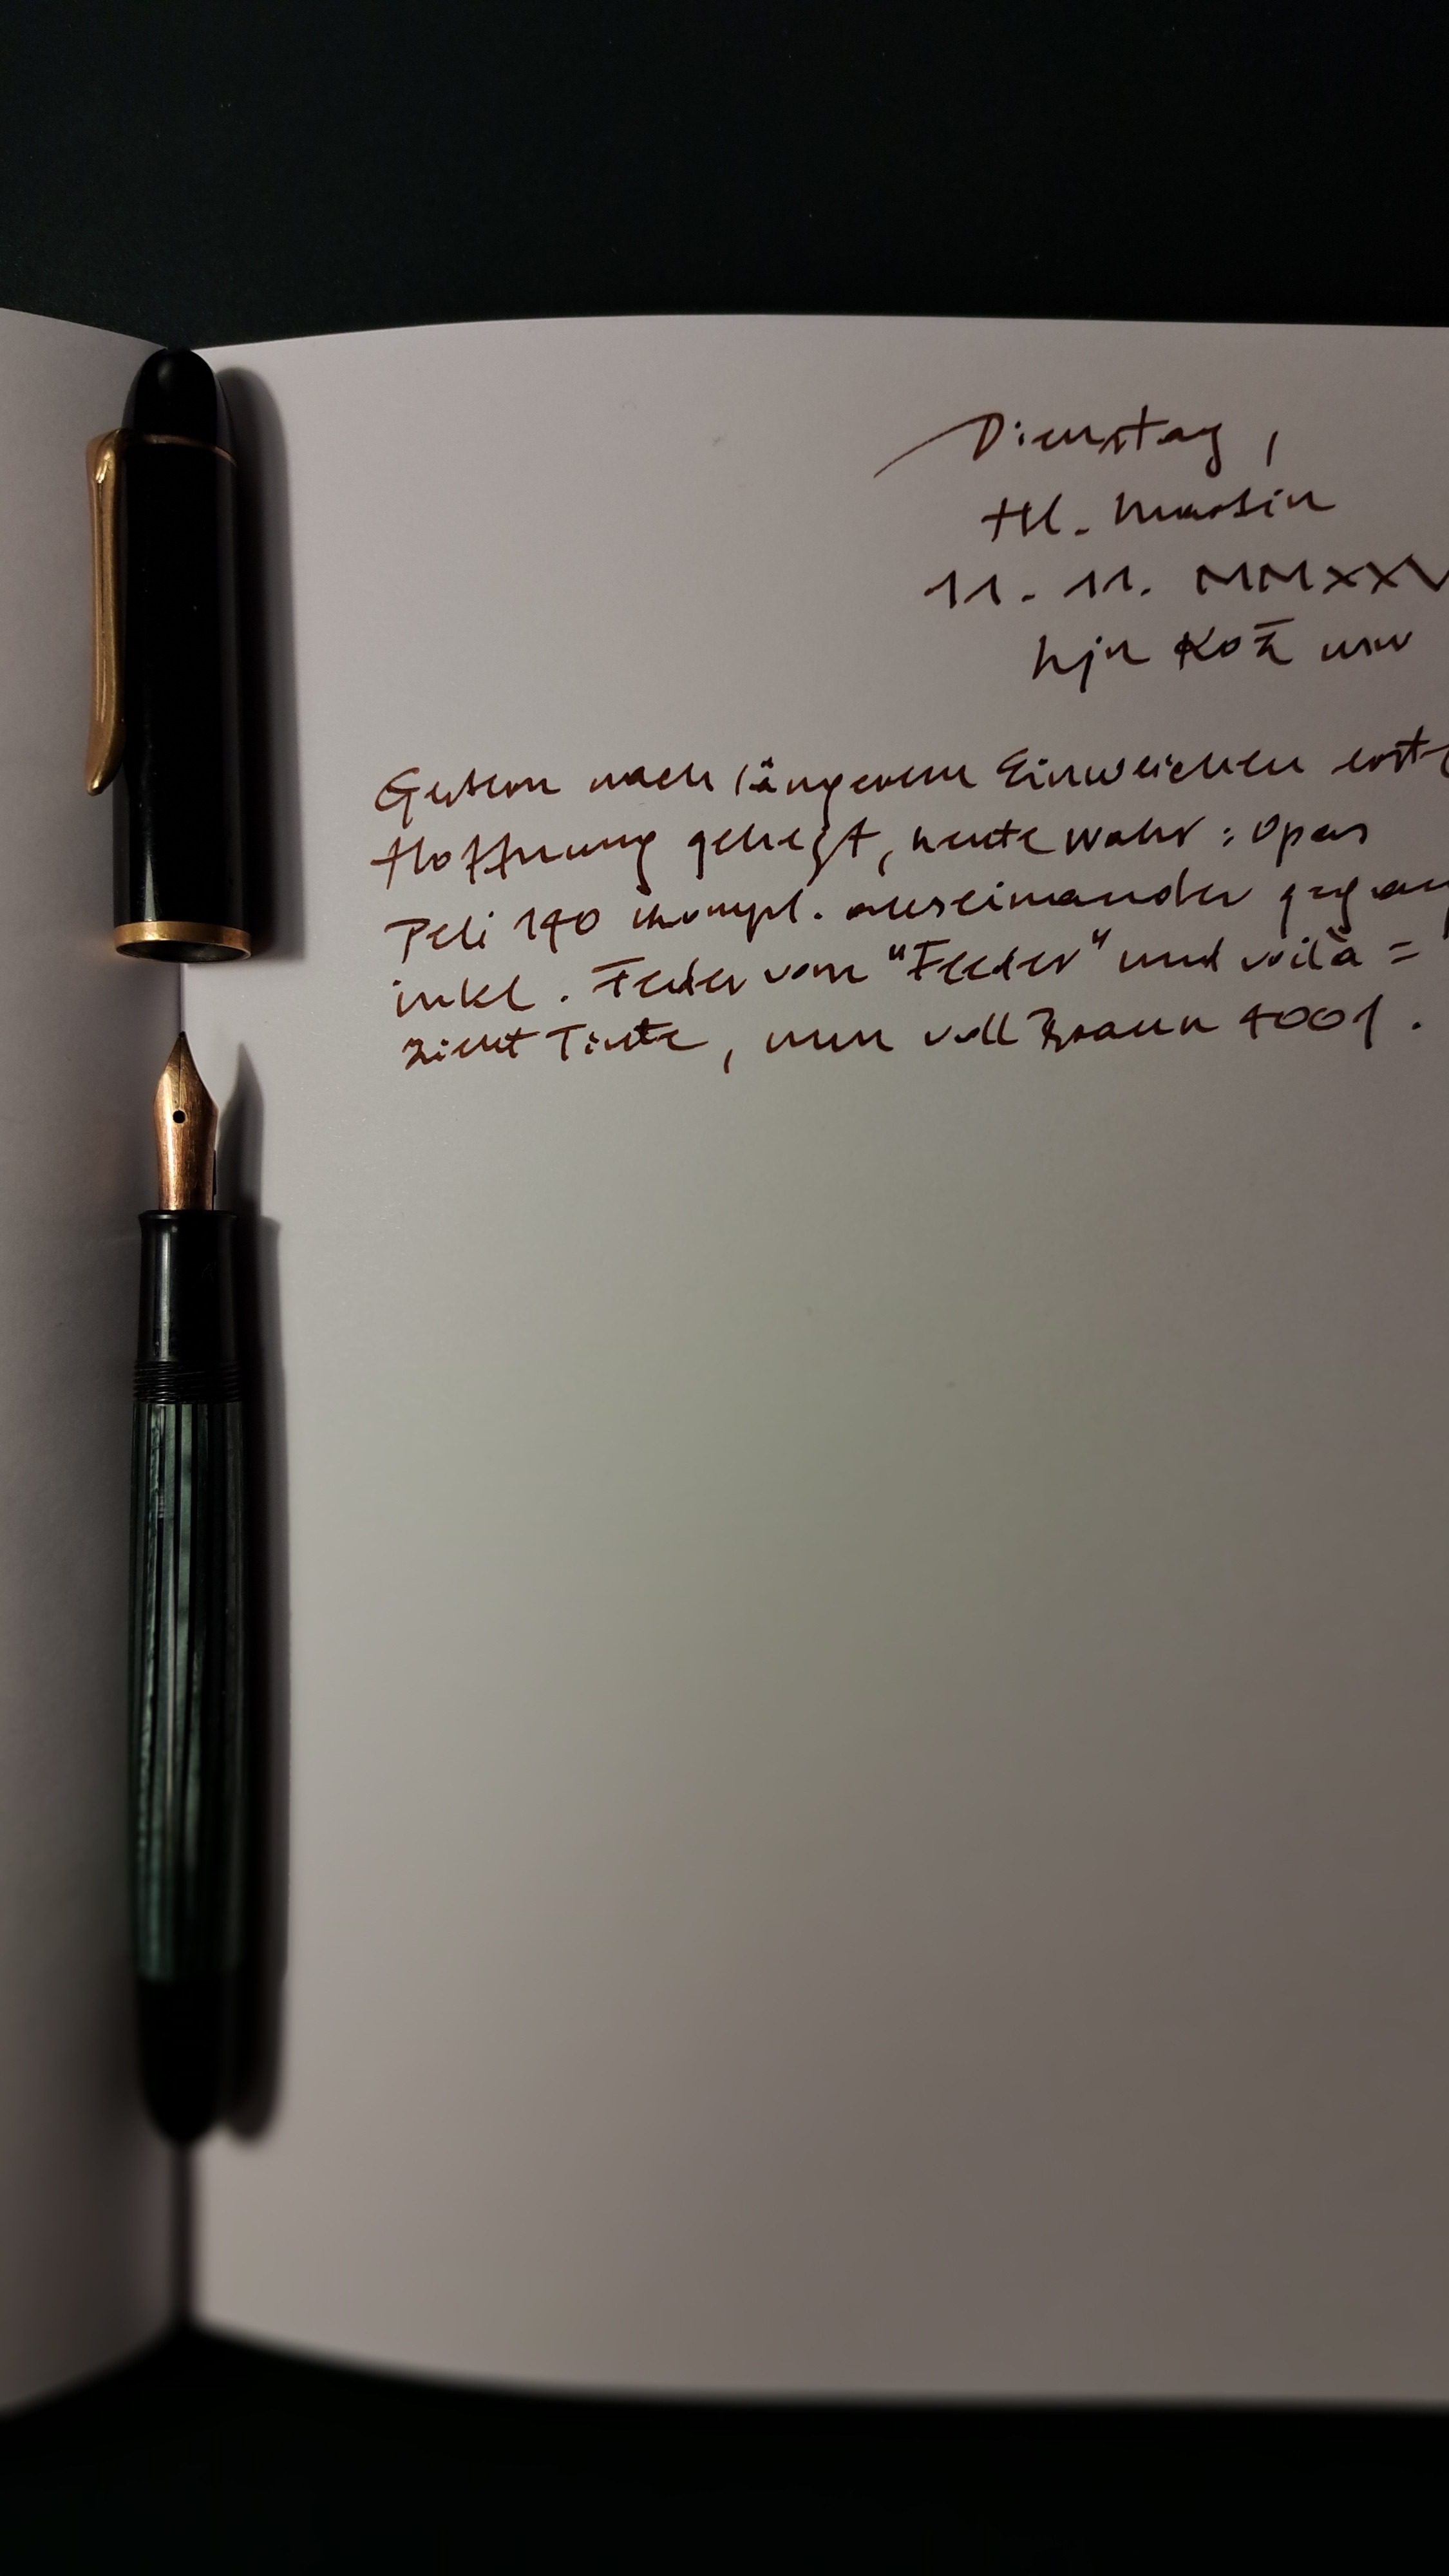 Dienstag,
Hl. Martin
11. 11. MMXXV
Gestern nach längerem Einweichen erste
Hoffnung gehegt, heute wahr: Opas
Peli 140 kompl. auseinander gegang
inkl. Feder vom "Feeder" und voilà =
zieht Tinte, nun voll Braun 4001.